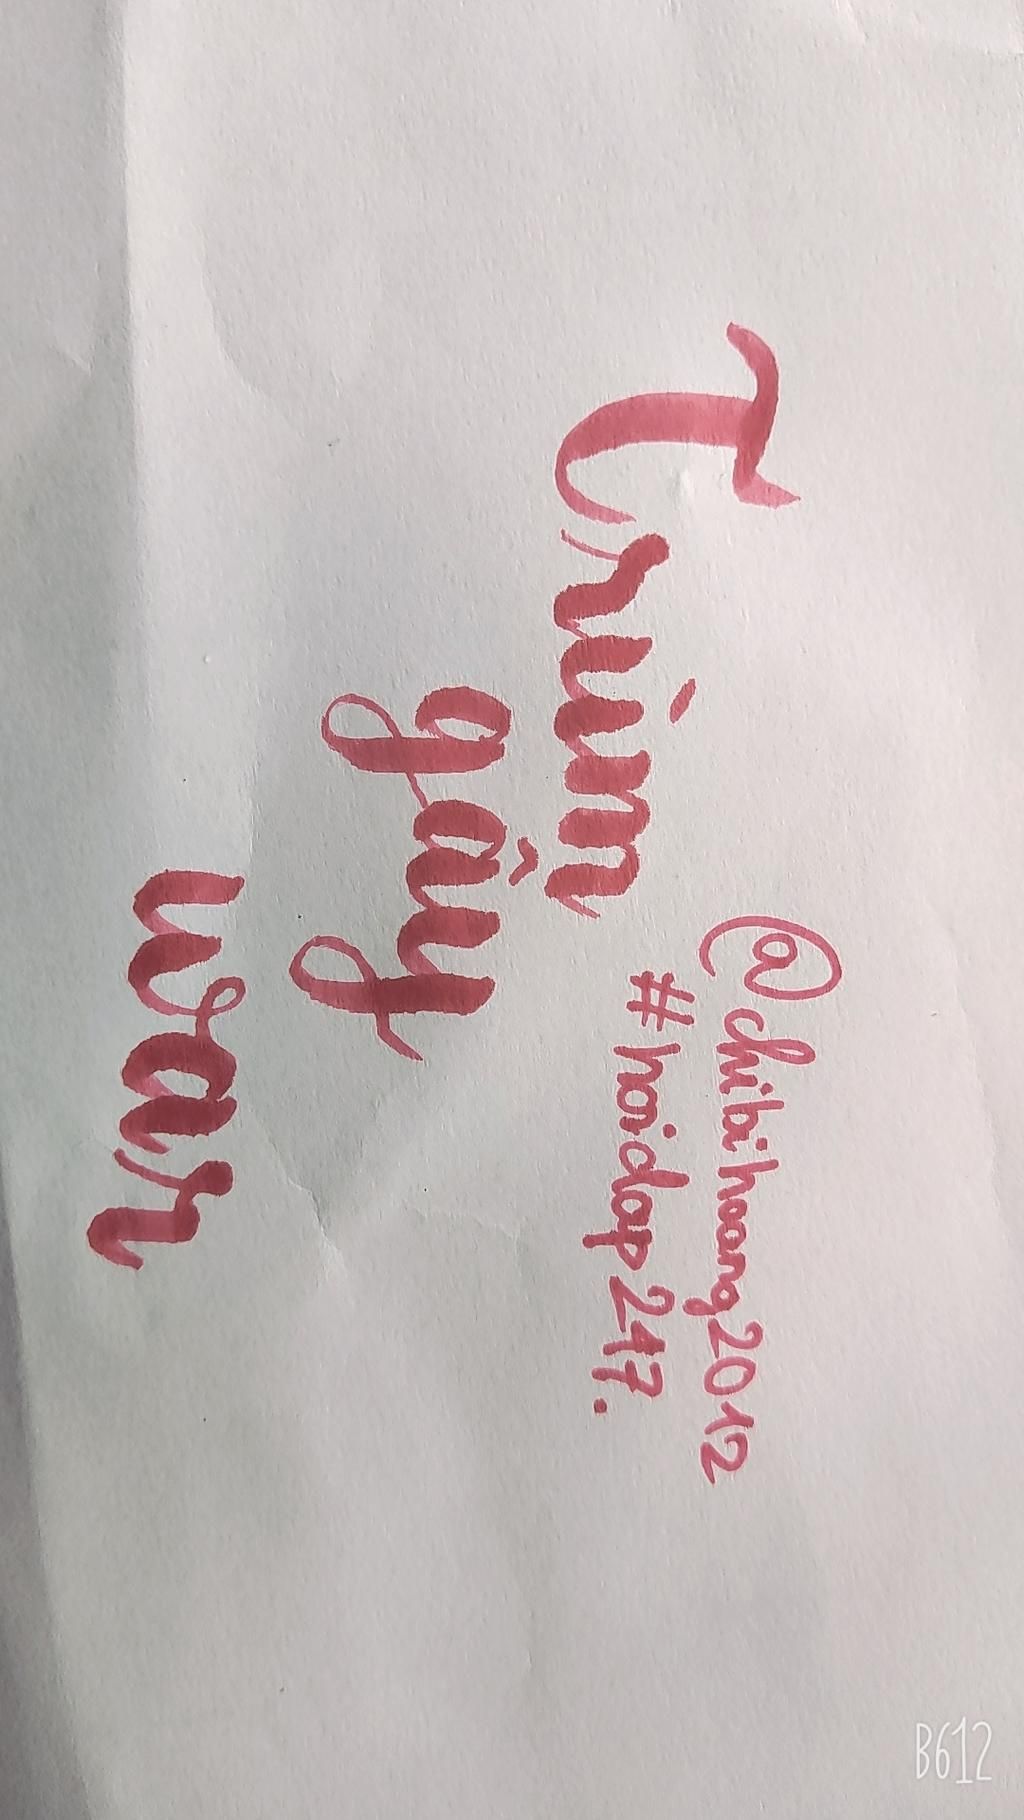 Trùm
gây
war
@chibihoang2012
#hoidap247.
B612